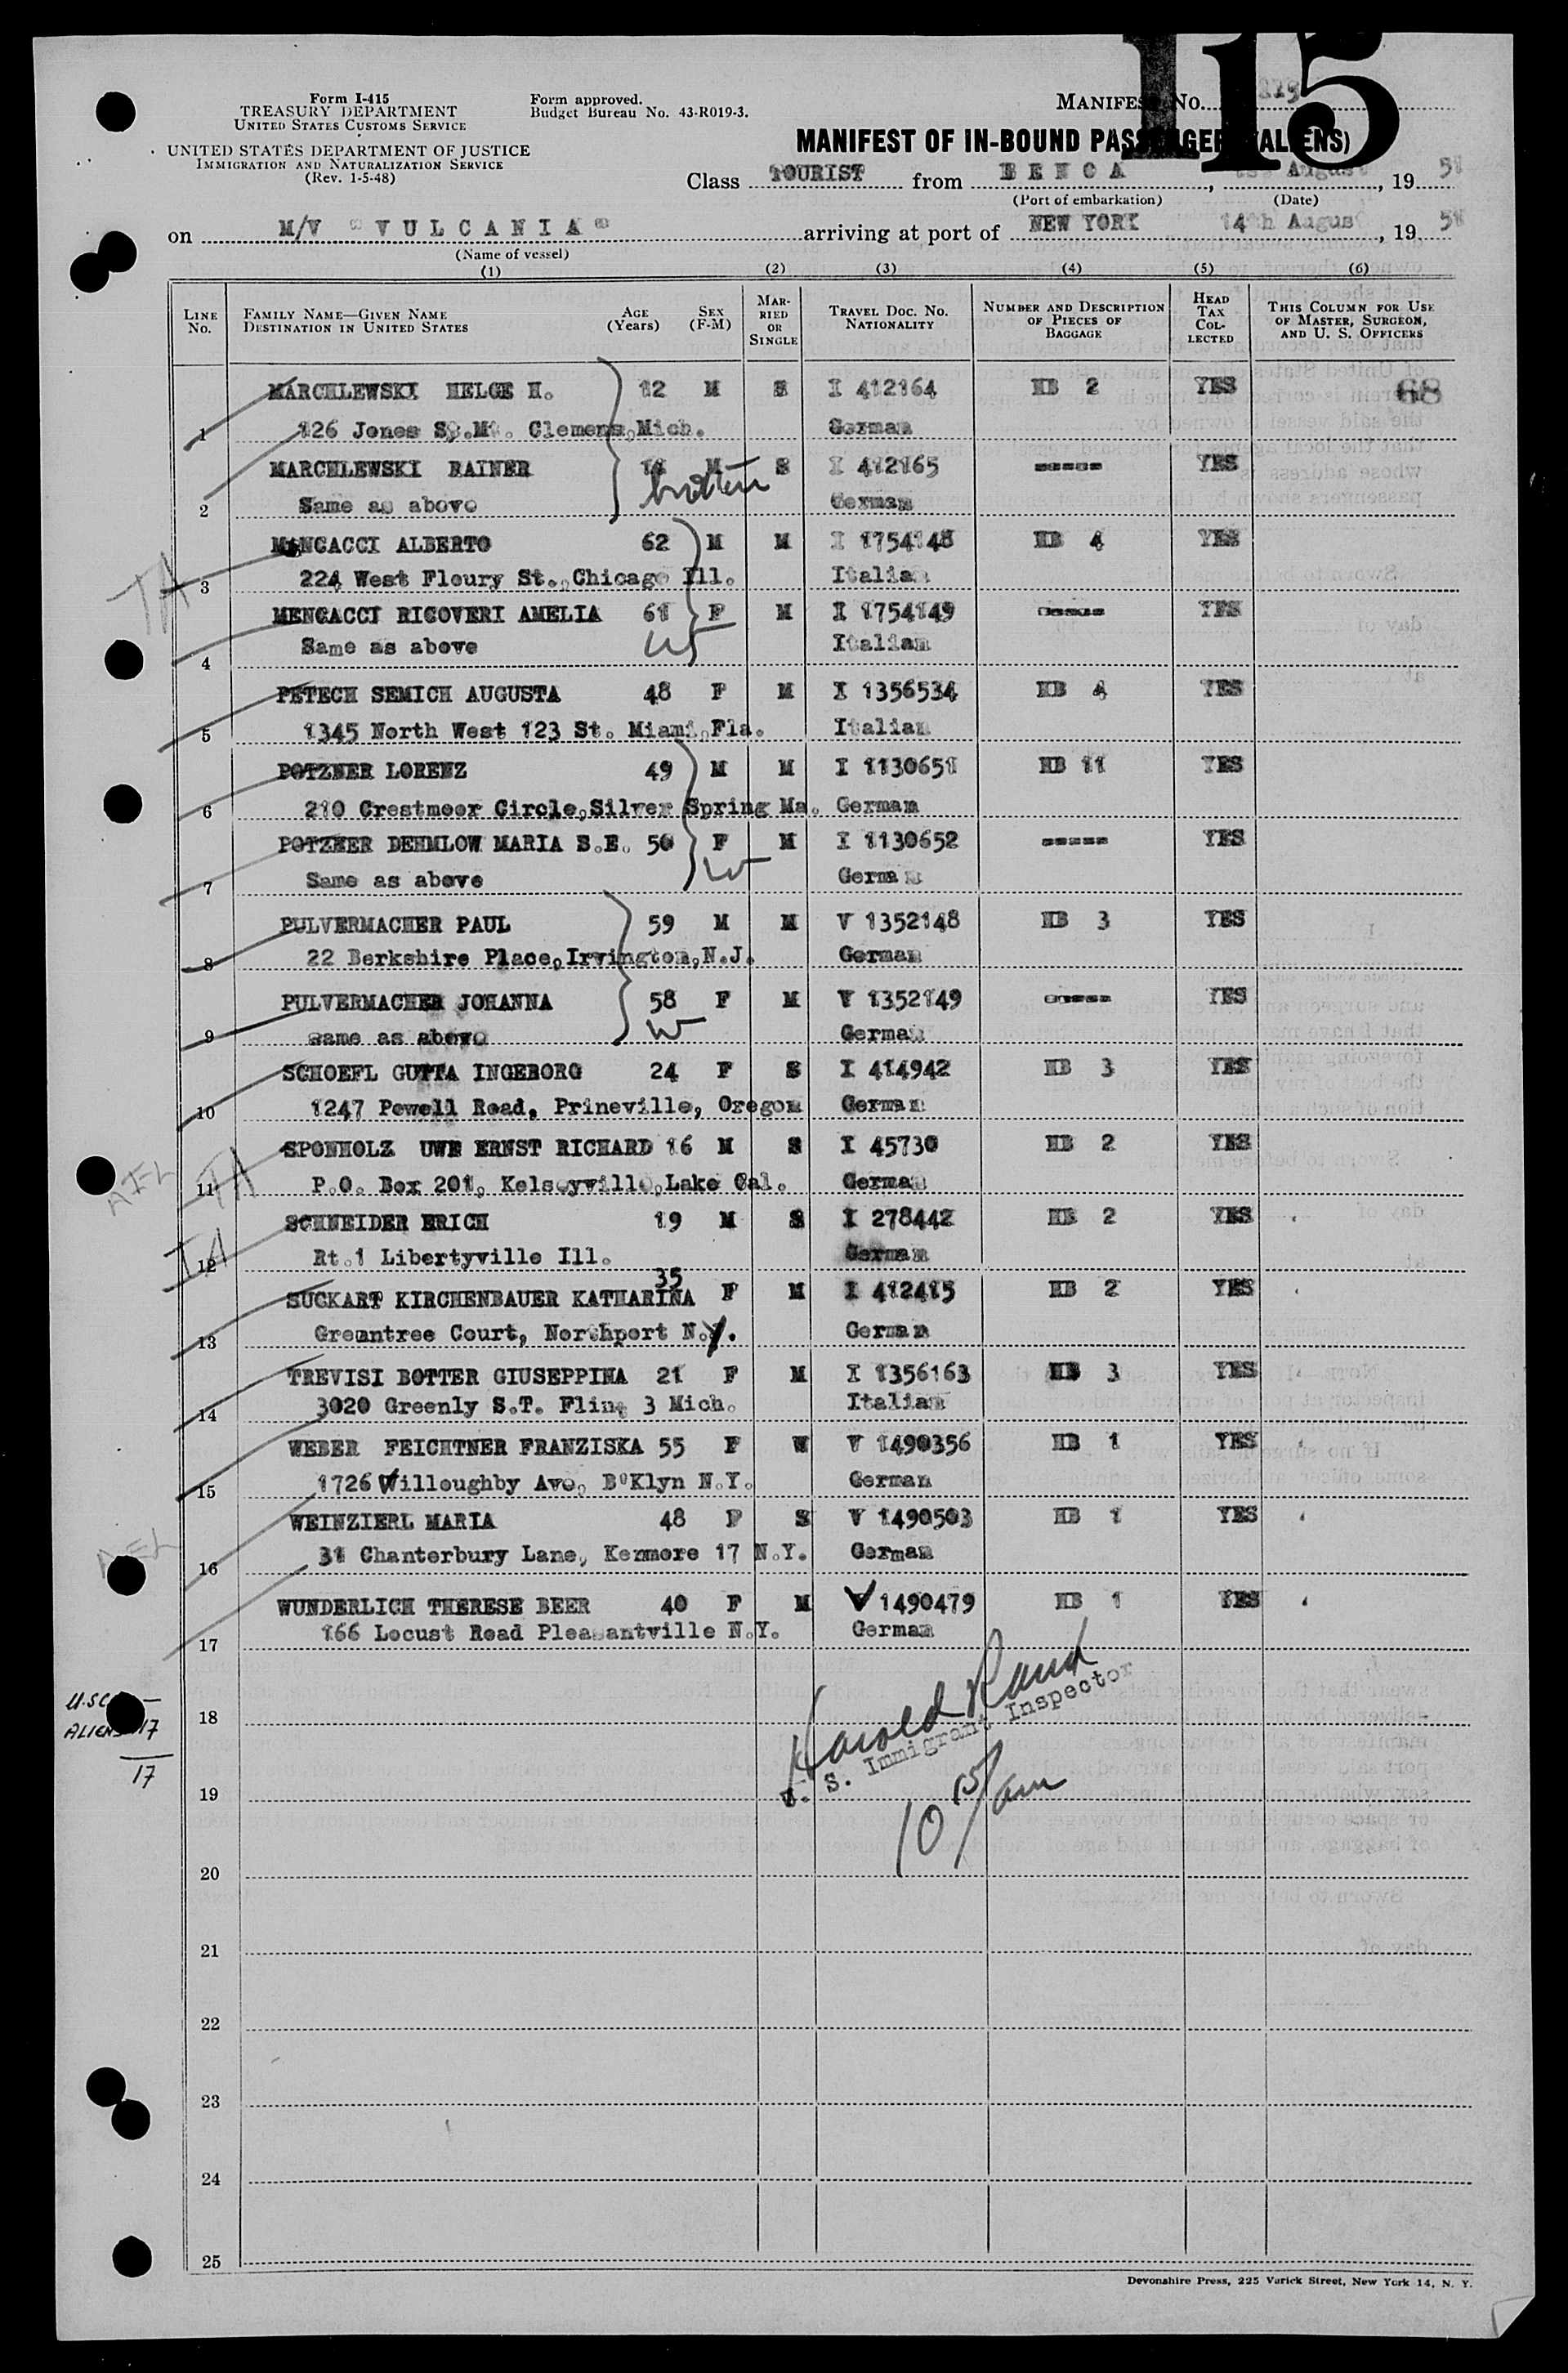 115
Form I-415
TREASURY DEPARTMENT
UNITED STATES CUSTOMS SERVICE
UNITED STATES DEPARTMENT OF JUSTICE
IMMIGRATION AND NATURALIZATION SERVICE
(Rev. 1-5-48)
Form approved.
Budget Bureau No. 43-R019-3.
MANIFEST No.
MANIFEST OF IN-BOUND PASSENGERS (ALIENS)
Class TOURIST from , August , 19
(Port of embarkation) (Date)
on M/V "VULCANIA" arriving at port of NEW YORK 14th August , 19
(Name of vessel)
(1) (2) (3) (4) (5) (6)
LINE No. FAMILY NAME—GIVEN NAME DESTINATION IN UNITED STATES AGE (Years) SEX (F-M) MARRIED OR SINGLE TRAVEL DOC. No. NATIONALITY NUMBER AND DESCRIPTION OF PIECES OF BAGGAGE HEAD TAX COLLECTED THIS COLUMN FOR USE OF MASTER, SURGEON, AND U. S. OFFICERS
MARCHLEWSKI HELGE H. 12 M S I 412164 HB 2 YES 68
1 126 Jones St.Mt. Clemens,Mich. German
MARCHLEWSKI RAINER M S I 412165 ----- YES
2 Same as above German
MENCACCI ALBERTO 62 M M I 1754148 HB 4 YES
3 224 West Fleury St.,Chicago Ill. Italian
TA
MENCACCI RICOVERI AMELIA 61 F M I 1754149 ----- YES
4 Same as above Italian
PETECH SEMICH AUGUSTA 48 F M I 1356534 HB 4 YES
5 1345 North West 123 St. Miami,Fla. Italian
POTZNER LORENZ 49 M M I 1130651 HB 11 YES
6 210 Crestmoor Circle,Silver Spring Ma. German
POTZNER DEHMLOW MARIA S.E. 50 F M I 1130652 ----- YES
7 Same as above German
PULVERMACHER PAUL 59 M M V 1352148 HB 3 YES
8 22 Berkshire Place,Irvington,N.J. German
PULVERMACHER JOHANNA 58 F M V 1352149 ----- YES
9 same as above German
SCHOEFL GUTTA INGEBORG 24 F S I 414942 HB 3 YES
10 1247 Powell Road, Prineville, Oregon German
SPONHOLZ UWE ERNST RICHARD 16 M S I 45730 HB 2 YES
11 P.O. Box 201, Kelseyville,Lake Cal. German
TA
SCHNEIDER ERICH 19 M S I 278442 HB 2 YES
12 Rt.1 Libertyville Ill. German
35
SUCKART KIRCHENBAUER KATHARINA F M I 412415 HB 2 YES
13 Greentree Court, Northport N.Y. German
TREVISI BOTTER GIUSEPPINA 21 F M I 1356163 HB 3 YES
14 3020 Greenly S.T. Flint 3 Mich. Italian
WEBER FEICHTNER FRANZISKA 55 F W V 1490356 HB 1 YES
15 1726 Willoughby Ave, B'Klyn N.Y. German
WEINZIERL MARIA 48 F S V 1490503 HB 1 YES
16 31 Chanterbury Lane, Kenmore 17 N.Y. German
WUNDERLICH THERESE BEER 40 F M V 1490479 HB 1 YES
17 166 Locust Road Pleasantville N.Y. German
U.SC —
ALIENS 17
17
18
Harold Rand
U. S. Immigrant Inspector
19
10 15/am
20
21
22
23
24
25
Devonshire Press, 225 Varick Street, New York 14, N. Y.